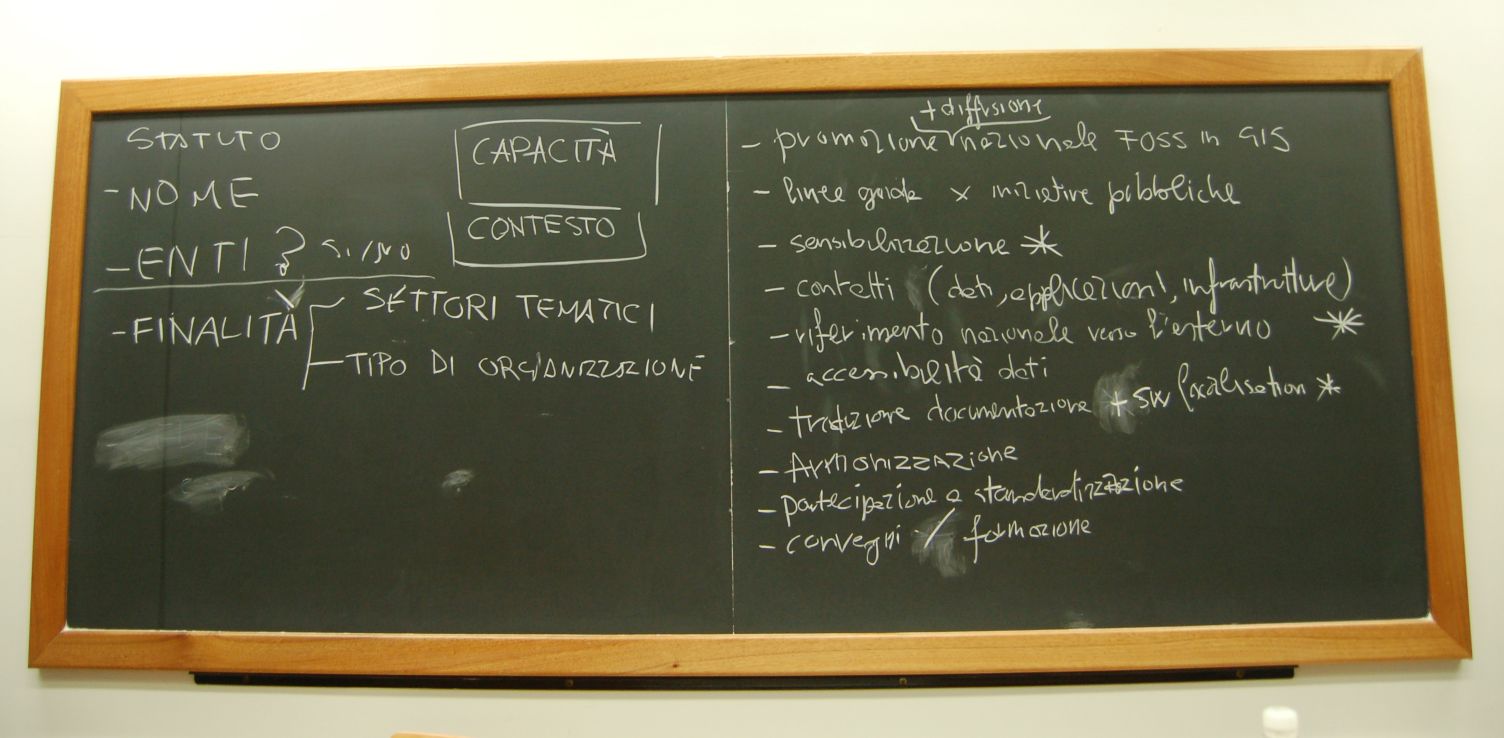 STATUTO
- NOME
- ENTI ? SI/NO
- FINALITÀ
SETTORI TEMATICI
- TIPO DI ORGANIZZAZIONE
CAPACITÀ
CONTESTO
+ diffusione
- promozione nazionale FOSS in GIS
- linee guida x iniziative pubbliche
- sensibilizzazione *
- contatti (dati, applicazioni, infrastrutture)
- riferimento nazionale verso l'esterno *
- accessibilità dati
- traduzione documentazione + SW localisation *
- Armonizzazione
- partecipazione a standardizzazione
- convegni / formazione